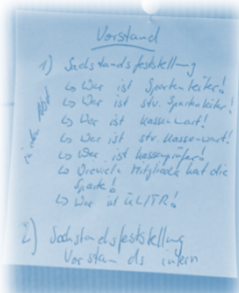 Vorstand
1) Sachstandsfeststellung
↳ Wer ist Spartenleiter!
↳ Wer ist stv. Spartenleiter!
↳ Wer ist Kassenwart!
↳ Wer ist stv. Kassenwart!
↳ Wer ist Kassenprüfer!
↳ Wieviele Mitglieder hat die
Sparte!
↳ Wer ist ÜL/TR!
2) Sachstandsfeststellung
Vorstands intern